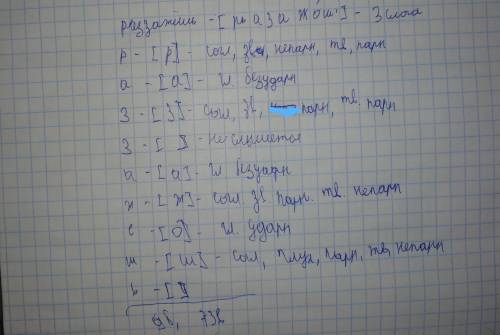 раззажешь - [р а з а ж о ш] - 3 слога
р - [р] - согл, зв, непарн, тв, парн
а - [а] - гл. безударн
з - [з] - согл, зв, парн, тв. парн
з - [ ] - не слышется
а - [а] - гл безударн
ж - [ж] - согл зв парн. тв. непарн
е - [о] - гл. ударн
ш - [ш] - согл, глух, парн, тв, непарн
ь - [ ]
9б, 7зв